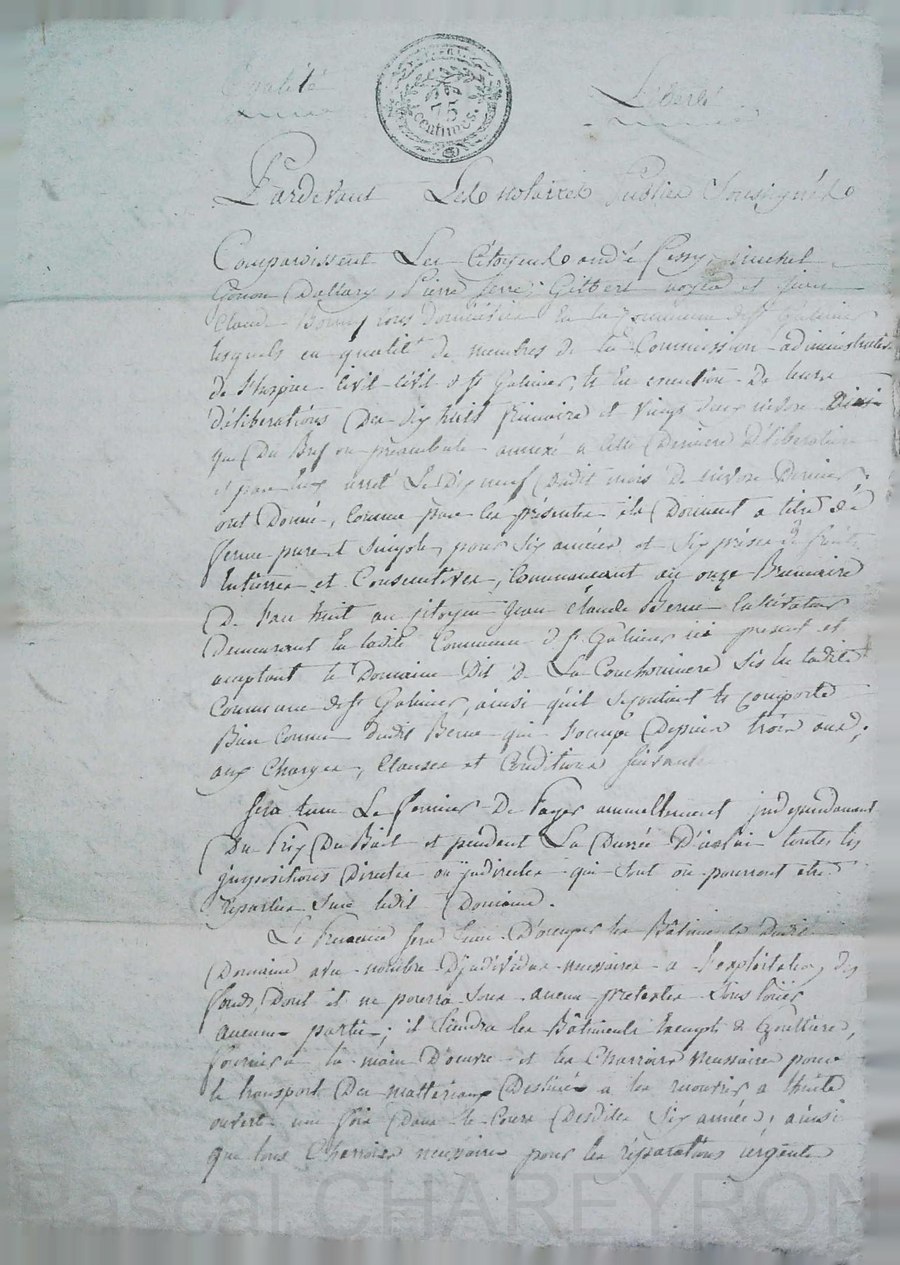 Egalité
75
centimes.
Liberté
Pardevant Les notaires Publics Soussignés
Comparoissent Les Citoyens andré michel
Gonon Dallary, Pierre Serre, Gilbert et jean
Claude tous domiciliés En la Commune de St Galmier
lesquels en qualité de membres de la Commission administrative
de L'hospice Civil Civil de St Galmier, & En execution De leurs
déliberations Des Dix huit frimaire et Vingt Deux nivose
que Du Bref en préambule annexé a cette Derniere Déliberation
et par eux arrété Le Dix neuf Dudit mois De nivose Dernier
ont Donné, Comme par les présentes ils Donnent a titre de
ferme pure et Simple, pour Six années et Six prises de fruits
Entieres et Consecutives, Commencant au onze Brumaire
De L'an huit au Citoyen jean Claude Berne Cultivateur
Demeurant En ladite Commune de St Galmier ici present et
acceptant le Domaine Dit De La Conchonniere Sis En ladite
Commune de St Galmier, ainsi qu'il Se contient & comporte
Bien Connu dudit Berne qui l'occupe Depuis trois ans,
aux Charges, Clauses et Conditions Suivantes
Sera tenu Le fermier De Payer annuellement independament
Du Prix Du Bail et pendent La Durée D'icelui toutes les
impositions Directes ou indirectes qui Sont ou pourront etre
réparties Sur ledit Domaine.
Le Preneur Sera tenu D'occuper les Bâtiments Dudit
Domaine avec nombre D'individus necessaires a l'exploitation des
fonds, Dont il ne pourra Sous aucun pretexte Sous louer
aucune partie; il tiendra les Bâtiments Exempts de Gouttieres,
fournira la main D'oeuvre et les Charrois necessaires pour
le transport Des matteriaux Destinés a les recouvrir a thuile
ouverte une fois Dans le Cours Desdites Six années, ainsi
que tous Charrois necessaires pour les réparations urgentes
Pascal CHAREYRON